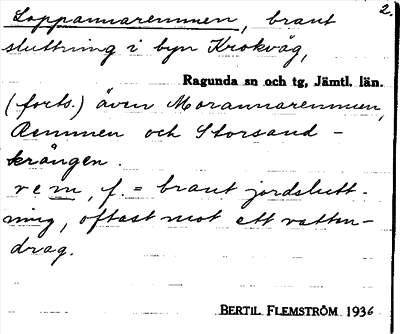 2.
Loppannaremmen, brant
sluttning i byn Krokvåg,
Ragunda sn och tg, Jämtl. län.
(forts.) även Morannaremmen,
Remmen och Storsand-
krången.
rem, f. = brant jordslutt-
ning, oftast mot ett vatten-
drag.
BERTIL FLEMSTRÖM 1936